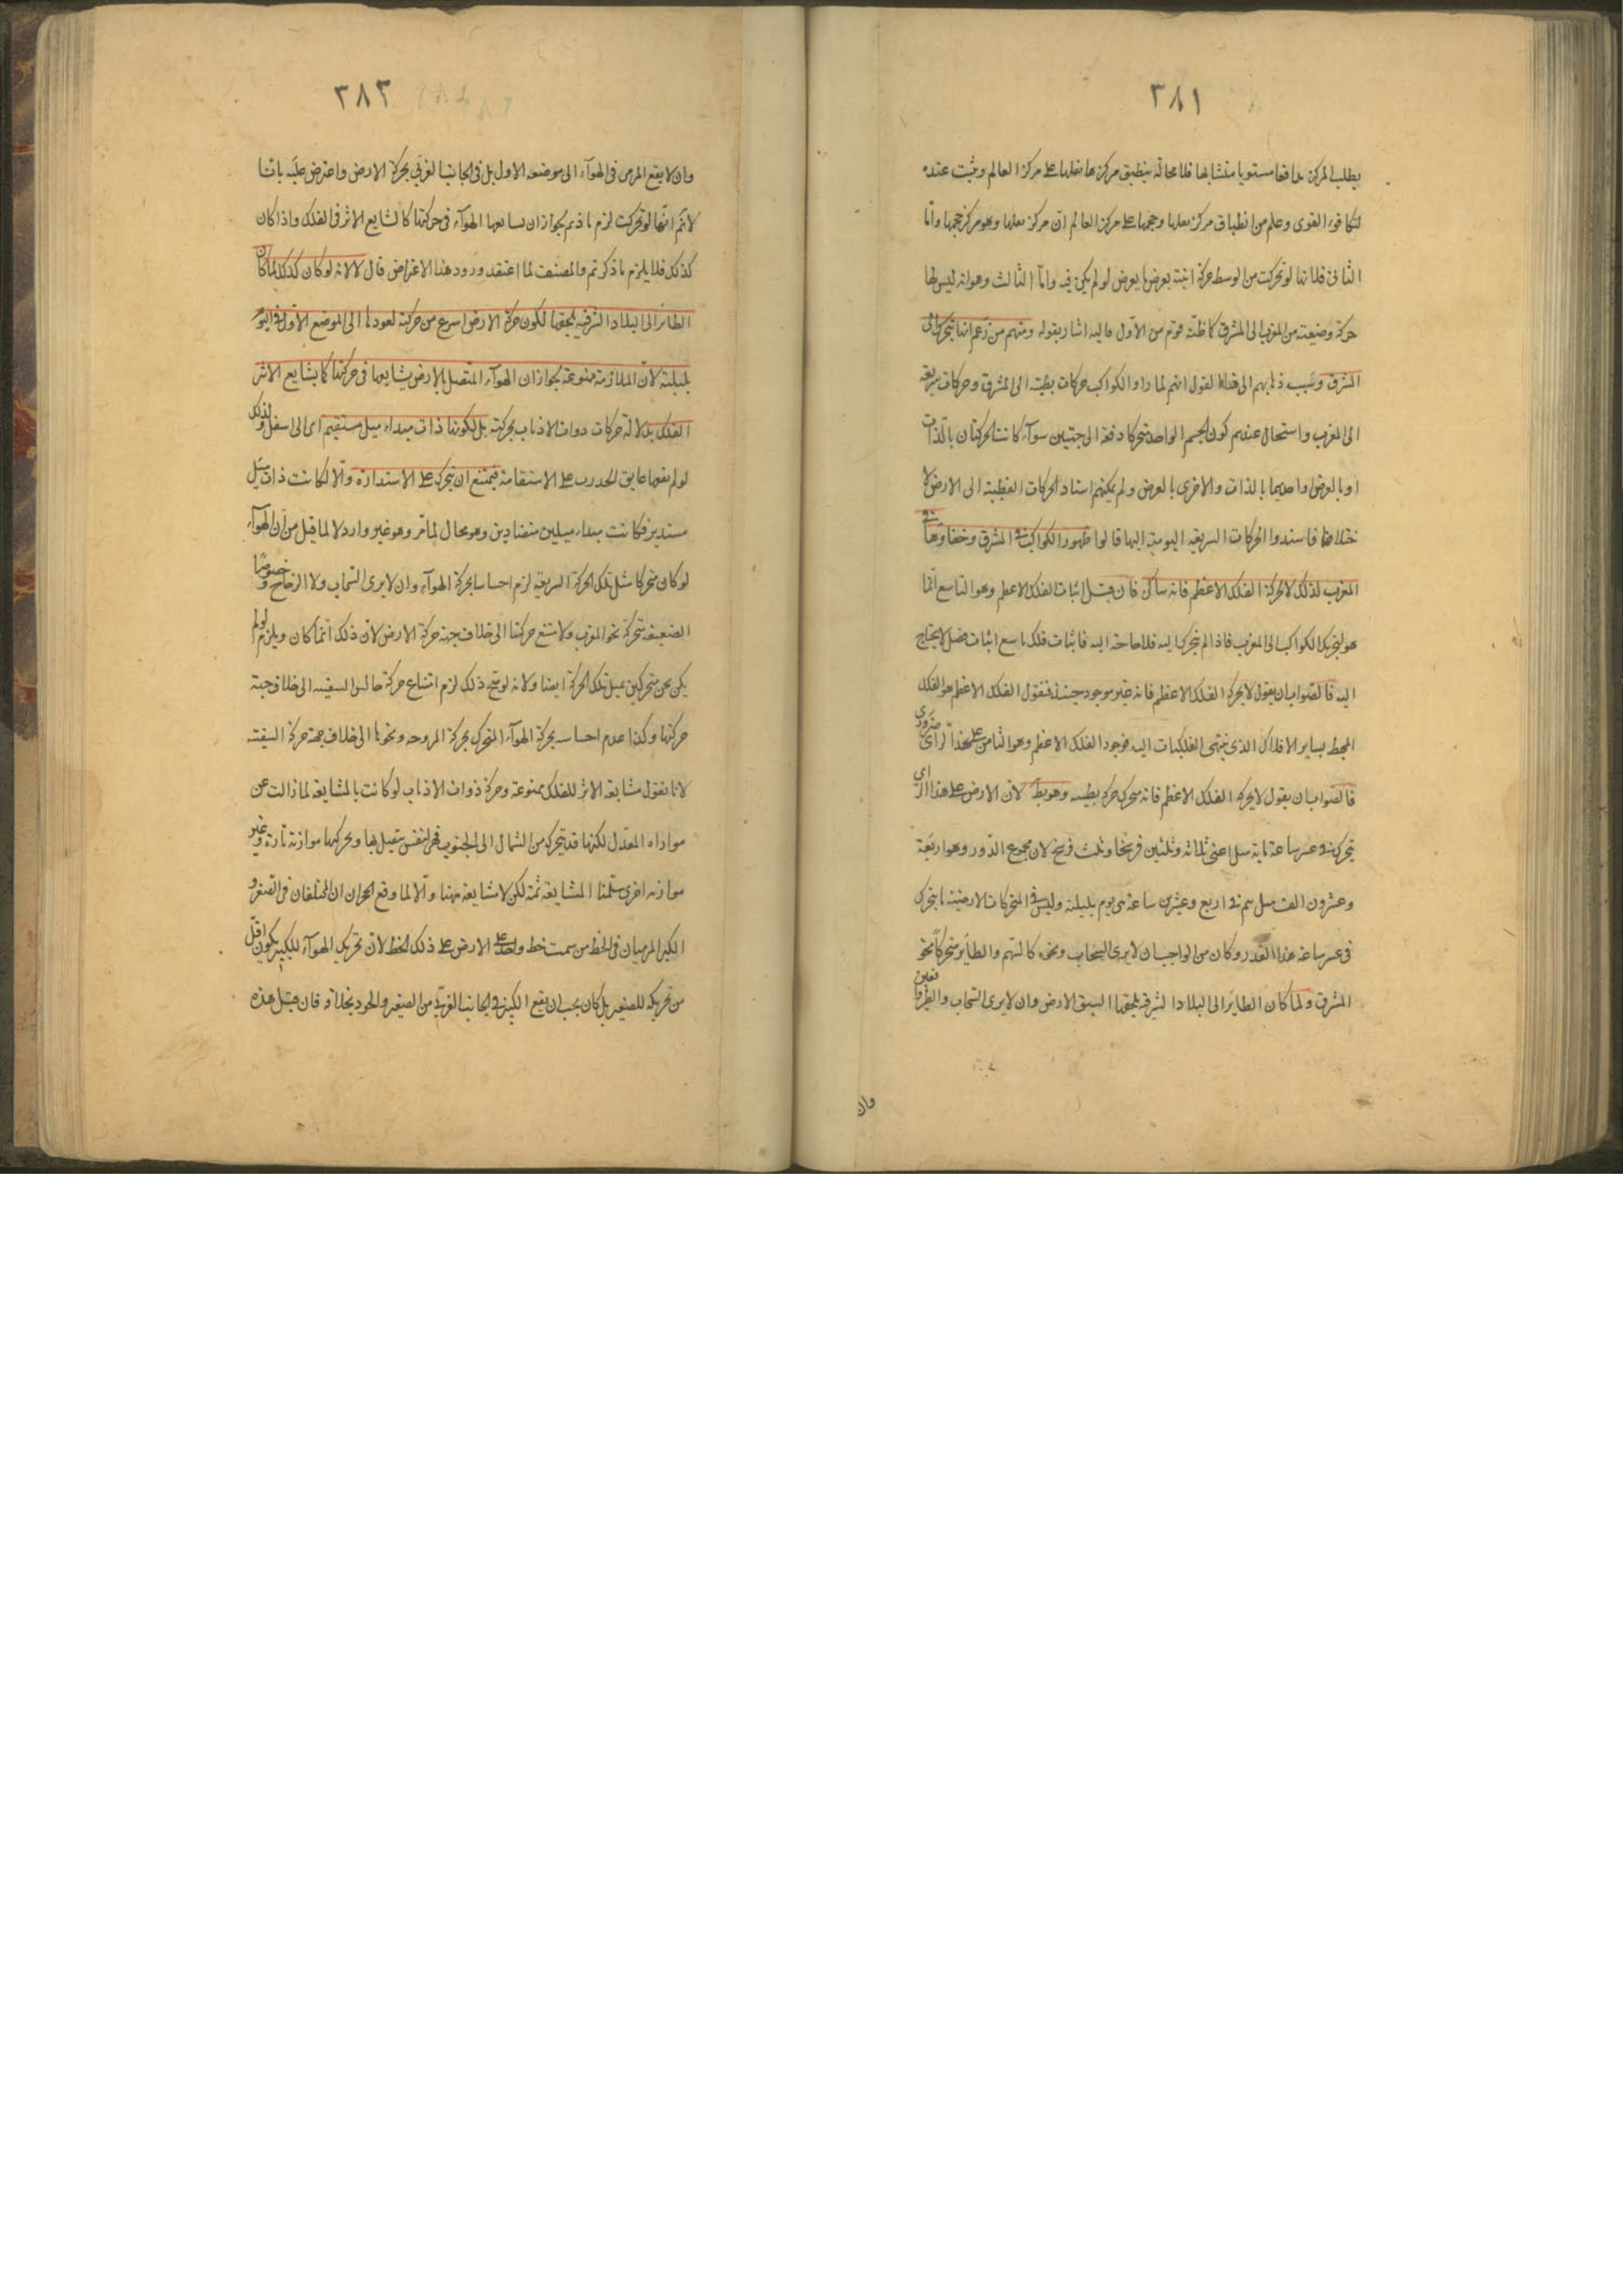 ٣٨١
يطلب المركز تدافعا مستويا متشابها فلا محالة ينطبق مركز ثقلها على مركز العالم ويثبت عنده
لتكافوء القوى وعلم من انطباق مركز ثقلها وحجمها على مركز العالم ان مركز ثقلها وهو مركز حجمها واما
الثانى فلانها لو تحركت من الوسط حركة اينية يعرض ما يعرض لو لم يكن فيه واما الثالث وهو انه ليس لها
حركة وضعية من المغرب الى المشرق كما ظنه قوم من الاول واليه اشار بقوله ومنهم من زعم انها تتحرك الى
المشرق وسبب ذهابهم الى هذا القول انهم لما راوا الكواكب حركات بطيئة الى المشرق وحركات سريعة
الى المغرب واستحال عندهم كون الجسم الواحد متحركا دفعة الى جهتين سوآء كانت الحركتان بالذات
او بالعرض او احديهما بالذات والاخرى بالعرض ولم يمكنهم اسناد الحركات البطيئة الى الارض لا
ختلافها فاسندوا الحركات السريعة اليومية اليها قالوا ظهور الكواكب فى المشرق وخفاوها فى
المغرب لذلك لا لحركة الفلك الاعظم فانه ساكن فان قيل اثبات الفلك الاعظم وهو التاسع انما
هو لتحريك الكواكب الى المغرب فاذا لم يتحرك اليه فلا حاجة اليه فاثبات فلك تاسع اثبات فضل لا يحتاج
اليه فالصواب ان يقول لا بحركة الفلك الاعظم فانه غير موجود حينئذ فنقول الفلك الاعظم هو الفلك
المحيط بساير الافلاك الذى ينتهى الفلكيات اليه فوجود الفلك الاعظم وهو الثامن على هذا الراى ضرورى
فالصواب ان يقول لا بحركة الفلك الاعظم فانه متحرك حركة بطيئة وهو بط لان الارض على هذا الراى
تتحرك فى عشر ساعة مائة ميل اعنى ثلاثة وثلثين فرسخا وثلث فرسخ لان مجموع الدور وهو اربعة
وعشرون الف ميل يتم فى اربع وعشرين ساعة هى يوم بليلته وليس فى المتحركات الارضية ما يتحرك
فى عشر ساعة هذا القدر وكان من الواجب ان لا يرى السحاب ونحوه كالسهم والطائر متحركا نحو
المشرق ولما كان الطاير الى البلاد الشرقية يلحقها لسبق الارض وان لا يرى السحاب والطير واقفين
وان
٣٨٢
وان لا يقع المرمى فى الهوآء الى موضعه الاول بل فى الجانب الغربى بحركة الارض واعترض عليه بانا
لا نم انها لو تحركت لزم ما ذكرتم بجواز ان يشايعها الهوآء فى حركتها كما يشايع الاثير الفلك واذا كان
كذلك فلا يلزم ما ذكرتم والمصنف لما اعتقد ورود هذا الاعتراض قال لا لانه لو كان كذلك لما كان
الطائر الى البلاد الشرقية يلحقها لكون حركة الارض اسرع من حركته لعودها الى الموضع الاول فى اليوم
بليلته لان الملازمة ممنوعة بجواز ان الهوآء المتصل بالارض يشايعها فى حركتها كما يشايع الاثير
الفلك بدلالة حركات ذوات الاذناب بحركته بل لكونها ذات مبداء ميل مستقيم اى الى اسفل ولذلك
لو لم يعقها عايق انحدرت على الاستقامة فيمتنع ان تتحرك على الاستدارة والا لكانت ذات ميل
مستدير فكانت مبداء ميلين متضادين وهو محال لما مر وهو غير وارد لا لما قيل من ان الهوآء
لو كان متحركا مثل تلك الحركة السريعة لزم احساسنا بحركة الهوآء وان لا يرى السحاب ولا الرياح خصوصا
الضعيفة متحركة نحو المغرب ولا متنع حركتنا الى خلاف جهة حركة الارض لان ذلك انما كان ويلزم لو لم
يكن نحن متحركين بمثل تلك الحركة ايضا ولانه لو صح ذلك لزم امتناع حركة جالس السفينة الى خلاف جهة
حركتها وكذا عدم احساسه بحركة الهوآء المتحرك بحركة المروحة ونحوها الى خلاف جهة حركة السفينة
لانا نقول مشايعة الاثير للفلك ممنوعة وحركة ذوات الاذناب لو كانت بالمشايعة لما زالت عن
موازاة المعدل لكنها قد تتحرك من الشمال الى الجنوب فهى لنفس يتصل بها ويحركها موازنة تارة وغير
موازنة اخرى سلمنا المشايعة ثمة لكن لا مشايعة ههنا والا لما وقع الحجران المختلفان فى الصغر و
الكبر المرميان فى الخط من سمت خط واحد على الارض على ذلك الخط لان تحريك الهوآء للكبير يكون اقل
من تحريكه للصغير بل كان يجب ان يقع الكبير فى الجانب الغربى من الصغير والوجود بخلافه فان قيل هذه